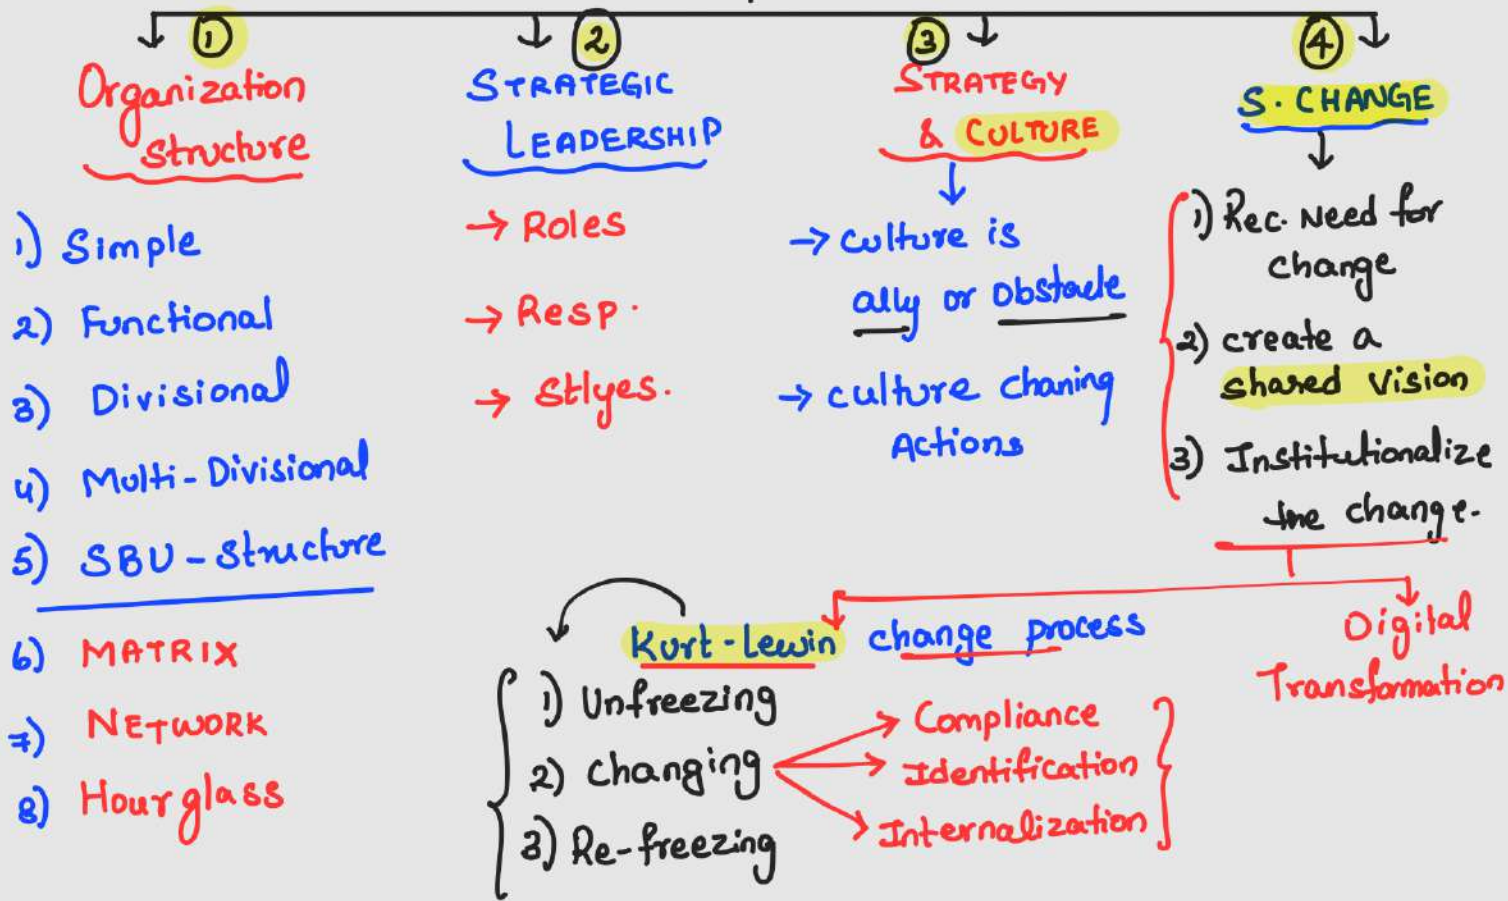 ①
Organization
Structure
1) Simple
2) Functional
3) Divisional
4) Multi-Divisional
5) SBU-Structure
6) MATRIX
7) NETWORK
8) Hourglass
②
STRATEGIC
LEADERSHIP
→ Roles
→ Resp.
→ Stlyes.
③
STRATEGY
& CULTURE
→ culture is
ally or obstacle
→ culture chaning
Actions
④
S. CHANGE
1) Rec. Need for
change
2) create a
shared vision
3) Institutionalize
the change.
Kurt-Lewin change process
1) Unfreezing
2) changing
3) Re-freezing
Compliance
Identification
Internalization
Digital
Transformation